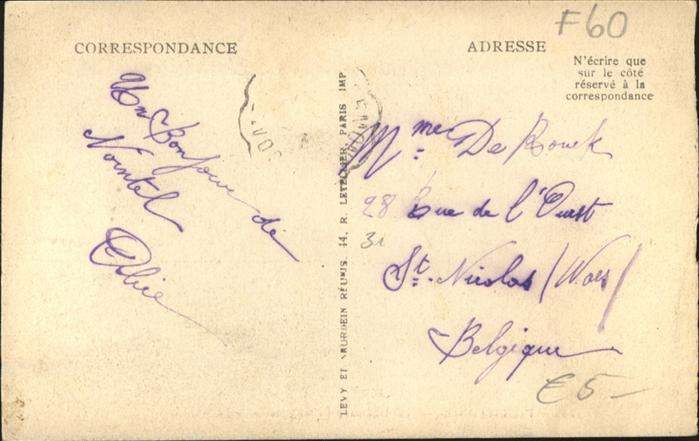 F60
CORRESPONDANCE
ADRESSE
N'écrire que
sur le côté
réservé à la
correspondance
Un Bonjour de
Nointel
LEVY ET NEURDEIN RÉUNIS, 44, R. LETELLIER, PARIS IMP
Mme De Bouck
28 Rue de l'Ouest
31
St. Nicolas (Waes)
Belgique
€5-